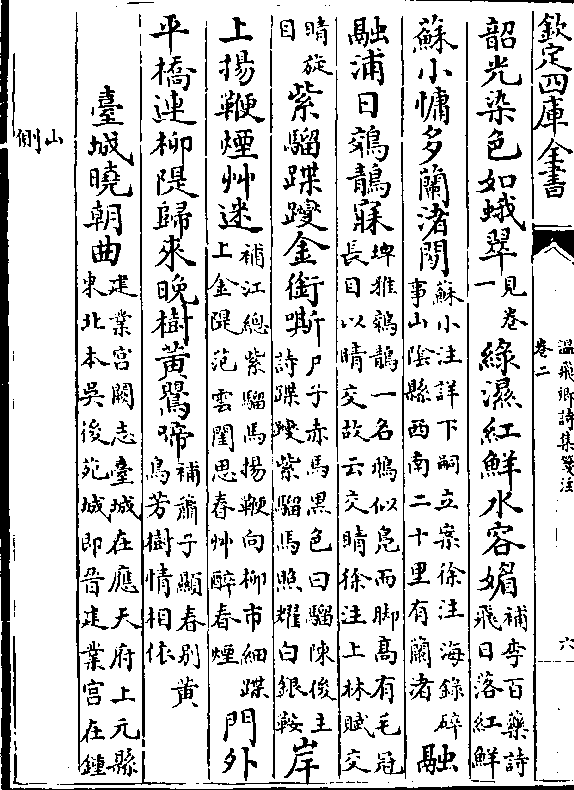 欽定四庫全書
溫飛卿詩集箋注
卷二
六
韶光染色如蛾翠見卷一綠濕紅鮮水容媚補李百藥詩飛日落紅鮮
蘇小慵多蘭渚閒蘇小注詳下嗣立案徐注海錄碎事山陰縣西南二十里有蘭渚融
融浦日鵁鶄寐埤雅鵁鶄一名鳽似鳧而脚高有毛冠長目以睛交故云交睛徐注上林賦交
睛旋目紫騮蹀躞金銜嘶尸子赤馬黑色曰騮陳俊主詩蹀躞紫騮馬照耀白銀鞍岸
上揚鞭煙艸迷補江總紫騮馬揚鞭向柳市細蹀上金隄范雲閨思春艸醉春煙門外
平橋連柳隄歸來晚樹黃鶯啼補蕭子顯春別黃鳥芳樹情相依
臺城曉朝曲建業宮闕志臺城在應天府上元縣東北本吳後苑城即晉建業宮在鍾
山側